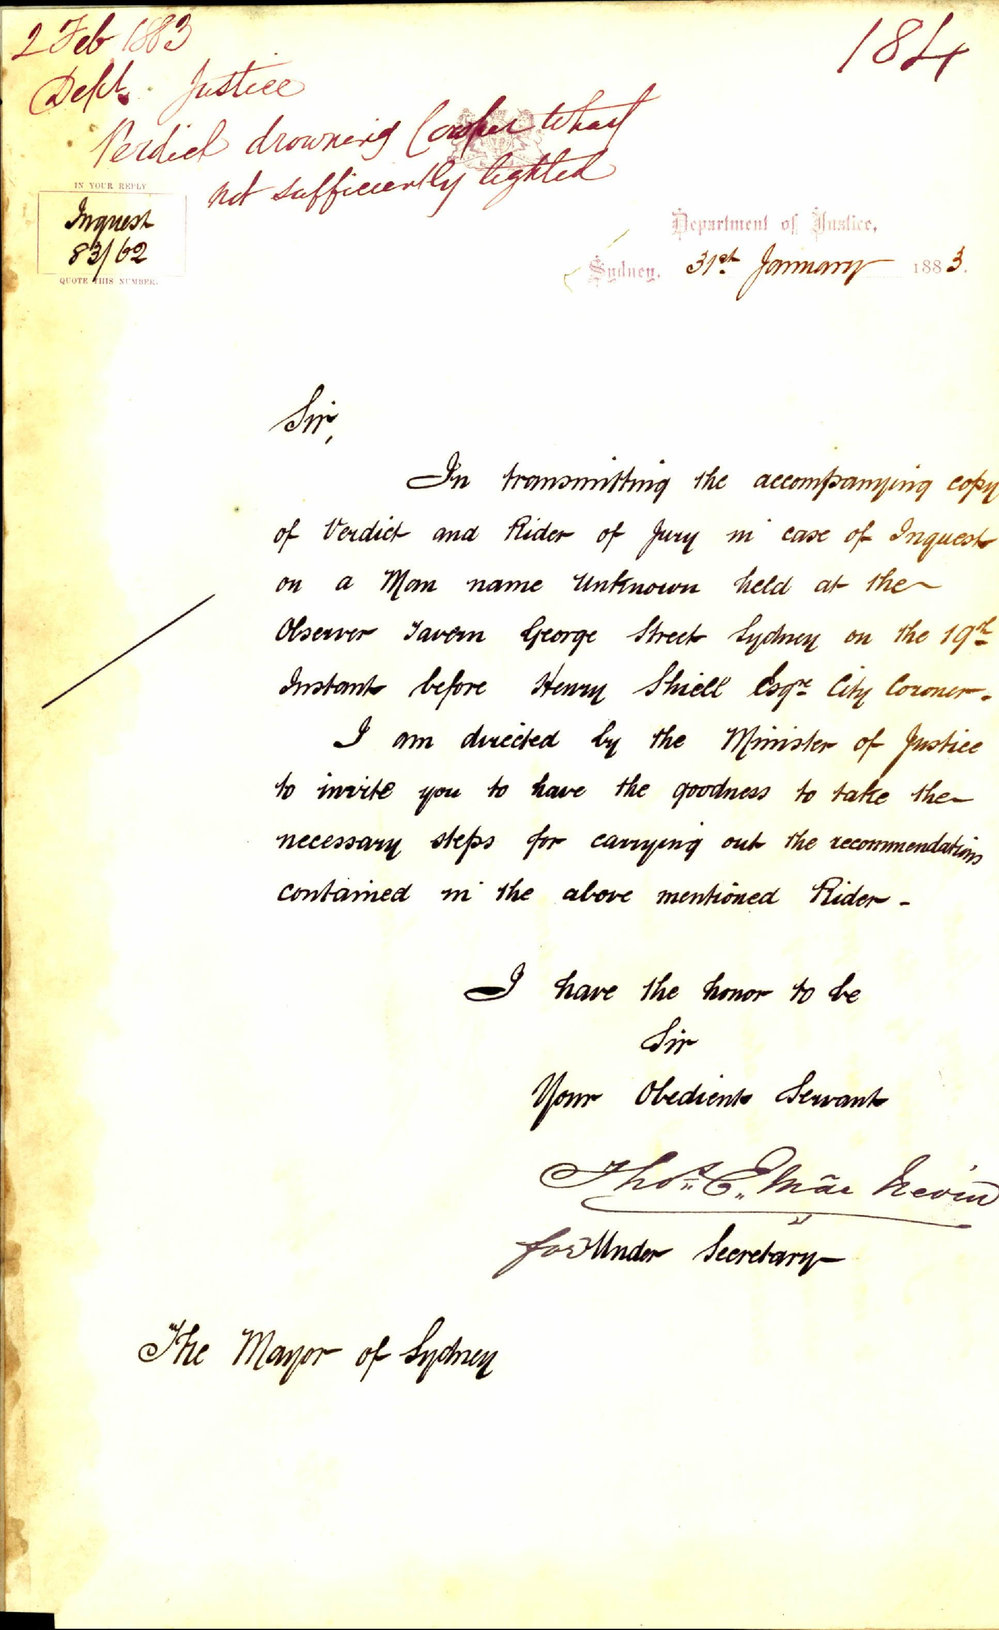 2 Feb 1883
184
Dept. Justice
Verdict drowning Cowper Wharf
not sufficiently lighted
IN YOUR REPLY
Inquest
83/62
QUOTE THIS NUMBER.
Department of Justice,
Sydney, 31st January 1883.
Sir,
In transmitting the accompanying copy
of Verdict and Rider of Jury in case of Inquest
on a Man name Unknown held at the
Observer Tavern George Street Sydney on the 19th
Instant before Henry Shiell Esqre City Coroner.
I am directed by the Minister of Justice
to invite you to have the goodness to take the
necessary steps for carrying out the recommendations
contained in the above mentioned Rider -
I have the honor to be
Sir
Your Obedient Servant
Thos. E. MacNevin
for Under Secretary
The Mayor of Sydney